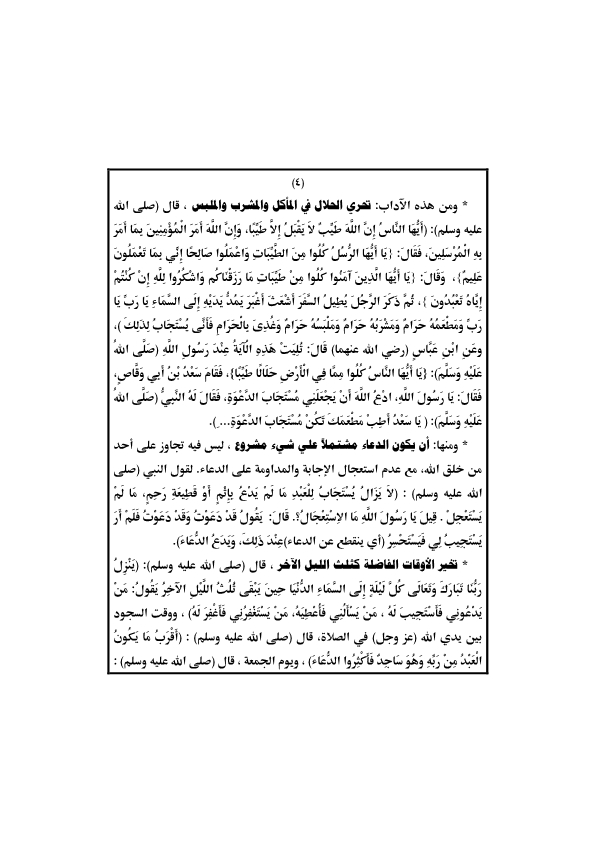 (٤)
* ومن هذه الآداب: تحري الحلال في المأكل والمشرب والملبس ، قال (صلى الله
عليه وسلم): (أَيُّهَا النَّاسُ إِنَّ اللَّهَ طَيِّبٌ لاَ يَقْبَلُ إِلاَّ طَيِّبًا، وَإِنَّ اللَّهَ أَمَرَ الْمُؤْمِنِينَ بِمَا أَمَرَ
بِهِ الْمُرْسَلِينَ، فَقَالَ: {يَا أَيُّهَا الرُّسُلُ كُلُوا مِنَ الطَّيِّبَاتِ وَاعْمَلُوا صَالِحًا إِنِّي بِمَا تَعْمَلُونَ
عَلِيمٌ}، وَقَالَ: {يَا أَيُّهَا الَّذِينَ آمَنُوا كُلُوا مِنْ طَيِّبَاتِ مَا رَزَقْنَاكُم وَاشْكُرُوا لِلَّهِ إِنْ كُنْتُمْ
إِيَّاهُ تَعْبُدُونَ }، ثُمَّ ذَكَرَ الرَّجُلَ يُطِيلُ السَّفَرَ أَشْعَثَ أَغْبَرَ يَمُدُّ يَدَيْهِ إِلَى السَّمَاءِ يَا رَبِّ يَا
رَبِّ وَمَطْعَمُهُ حَرَامٌ وَمَشْرَبُهُ حَرَامٌ وَمَلْبَسُهُ حَرَامٌ وَغُذِىَ بِالْحَرَامِ فَأَنَّى يُسْتَجَابُ لِذَلِكَ )،
وعَنِ ابْنِ عَبَّاسٍ (رضي الله عنهما) قَالَ: تُلِيَتْ هَذِهِ الْآيَةُ عِنْدَ رَسُولِ اللَّهِ (صَلَّى اللهُ
عَلَيْهِ وَسَلَّمَ): {يَا أَيُّهَا النَّاسُ كُلُوا مِمَّا فِي الْأَرْضِ حَلَالًا طَيِّبًا}، فَقَامَ سَعْدُ بْنُ أَبِي وَقَّاصٍ،
فَقَالَ: يَا رَسُولَ اللَّهِ، ادْعُ اللَّهَ أَنْ يَجْعَلَنِي مُسْتَجَابَ الدَّعْوَةِ، فَقَالَ لَهُ النَّبِيُّ (صَلَّى اللهُ
عَلَيْهِ وَسَلَّمَ): ( يَا سَعْدُ أَطِبْ مَطْعَمَكَ تَكُنْ مُسْتَجَابَ الدَّعْوَةِ...).
* ومنها: أن يكون الدعاء مشتملاً علي شيء مشروع ، ليس فيه تجاوز على أحد
من خلق الله، مع عدم استعجال الإجابة والمداومة على الدعاء. لقول النبي (صلى
الله عليه وسلم) : (لاَ يَزَالُ يُسْتَجَابُ لِلْعَبْدِ مَا لَمْ يَدْعُ بِإِثْمٍ أَوْ قَطِيعَةِ رَحِمٍ، مَا لَمْ
يَسْتَعْجِلْ . قِيلَ يَا رَسُولَ اللَّهِ مَا الاِسْتِعْجَالُ؟. قَالَ: يَقُولُ قَدْ دَعَوْتُ وَقَدْ دَعَوْتُ فَلَمْ أَرَ
يَسْتَجِيبُ لِي فَيَسْتَحْسِرُ (أي ينقطع عن الدعاء)عِنْدَ ذَلِكَ، وَيَدَعُ الدُّعَاءَ).
* تخير الأوقات الفاضلة كثلث الليل الآخر ، قال (صلى الله عليه وسلم): (يَنْزِلُ
رَبُّنَا تَبَارَكَ وَتَعَالَى كُلَّ لَيْلَةٍ إِلَى السَّمَاءِ الدُّنْيَا حِينَ يَبْقَى ثُلُثُ اللَّيْلِ الآخِرُ يَقُولُ: مَنْ
يَدْعُونِي فَأَسْتَجِيبَ لَهُ ، مَنْ يَسْأَلُنِي فَأُعْطِيَهُ، مَنْ يَسْتَغْفِرُنِي فَأَغْفِرَ لَهُ) ، ووقت السجود
بين يدي الله (عز وجل) في الصلاة، قال (صلى الله عليه وسلم) : (أَقْرَبُ مَا يَكُونُ
الْعَبْدُ مِنْ رَبِّهِ وَهُوَ سَاجِدٌ فَأَكْثِرُوا الدُّعَاءَ) ، ويوم الجمعة ، قال (صلى الله عليه وسلم) :